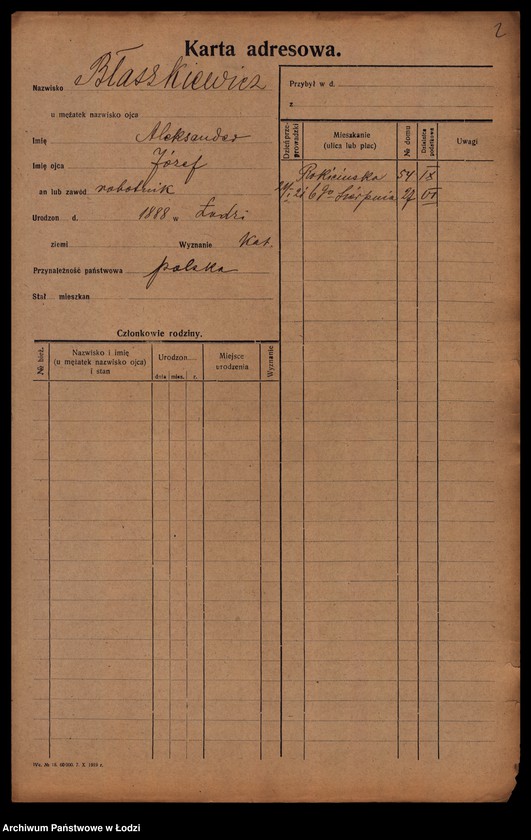 2
Karta adresowa.
Nazwisko Błaszkiewicz
u mężatek nazwisko ojca
Imię Aleksander
Imię ojca Józef
an lub zawód robotnik
Urodzon d. 1888 w Łodzi
ziemi Wyznanie Kat.
Przynależność państwowa polska
Stał mieszkan
Członkowie rodziny.
№ bież. Nazwisko i imię (u mężatek nazwisko ojca) i stan Urodzon dnia mies. r. Miejsce urodzenia Wyznanie
Przybył w d.
z
Dzień przeprowadzki Mieszkanie (ulica lub plac) № domu Dzielnica podatkowa Uwagi
Rokicińska 54 IX
6go Sierpnia VI
Wz. № 16. 60·500. 7. X. 1919 r.
Archiwum Państwowe w Łodzi